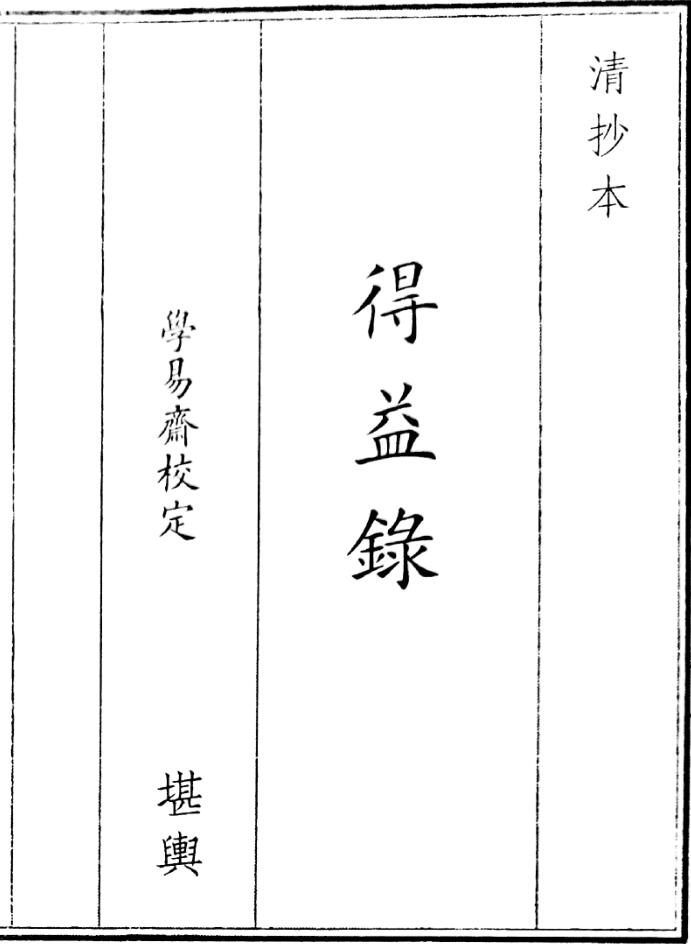 清抄本
得益錄
學易齋校定
堪輿